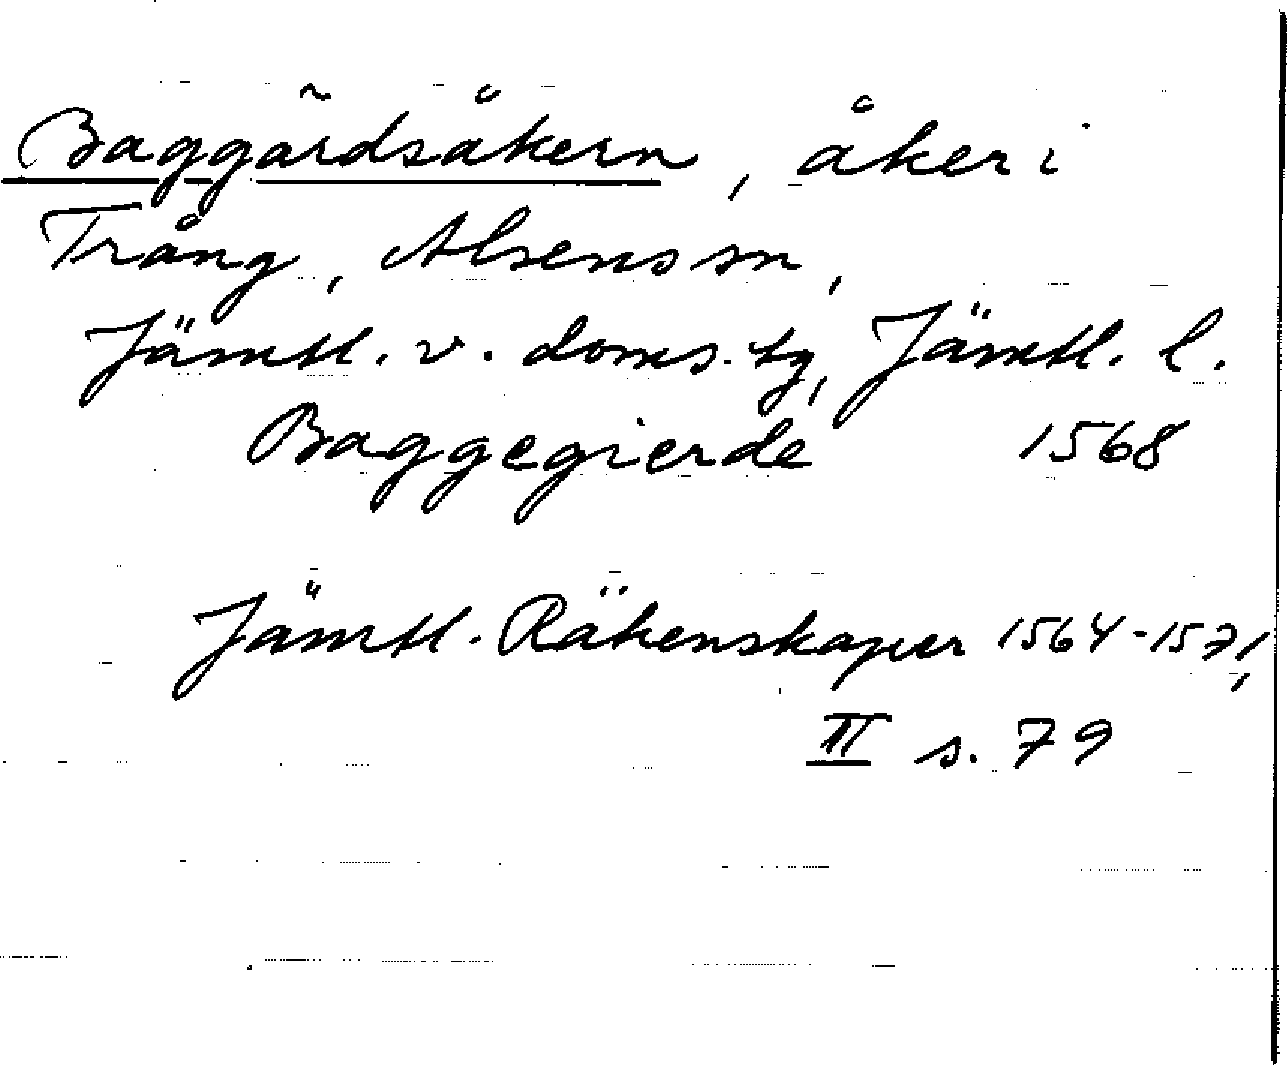 Baggårdsåkern, åker i
Trång, Alsens sn,
Jämtl. v. doms. tg, Jämtl. l.
Baggegierde 1568
Jämtl. Räkenskaper 1564-1571,
II s. 79